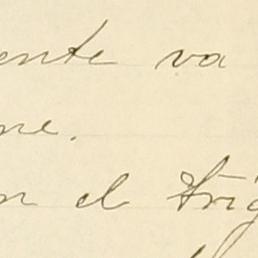 ente va
ne.
n el trig